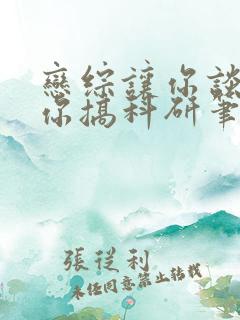 戀綜讓你談
你搞科研筆
張從利
未经同意禁止转载